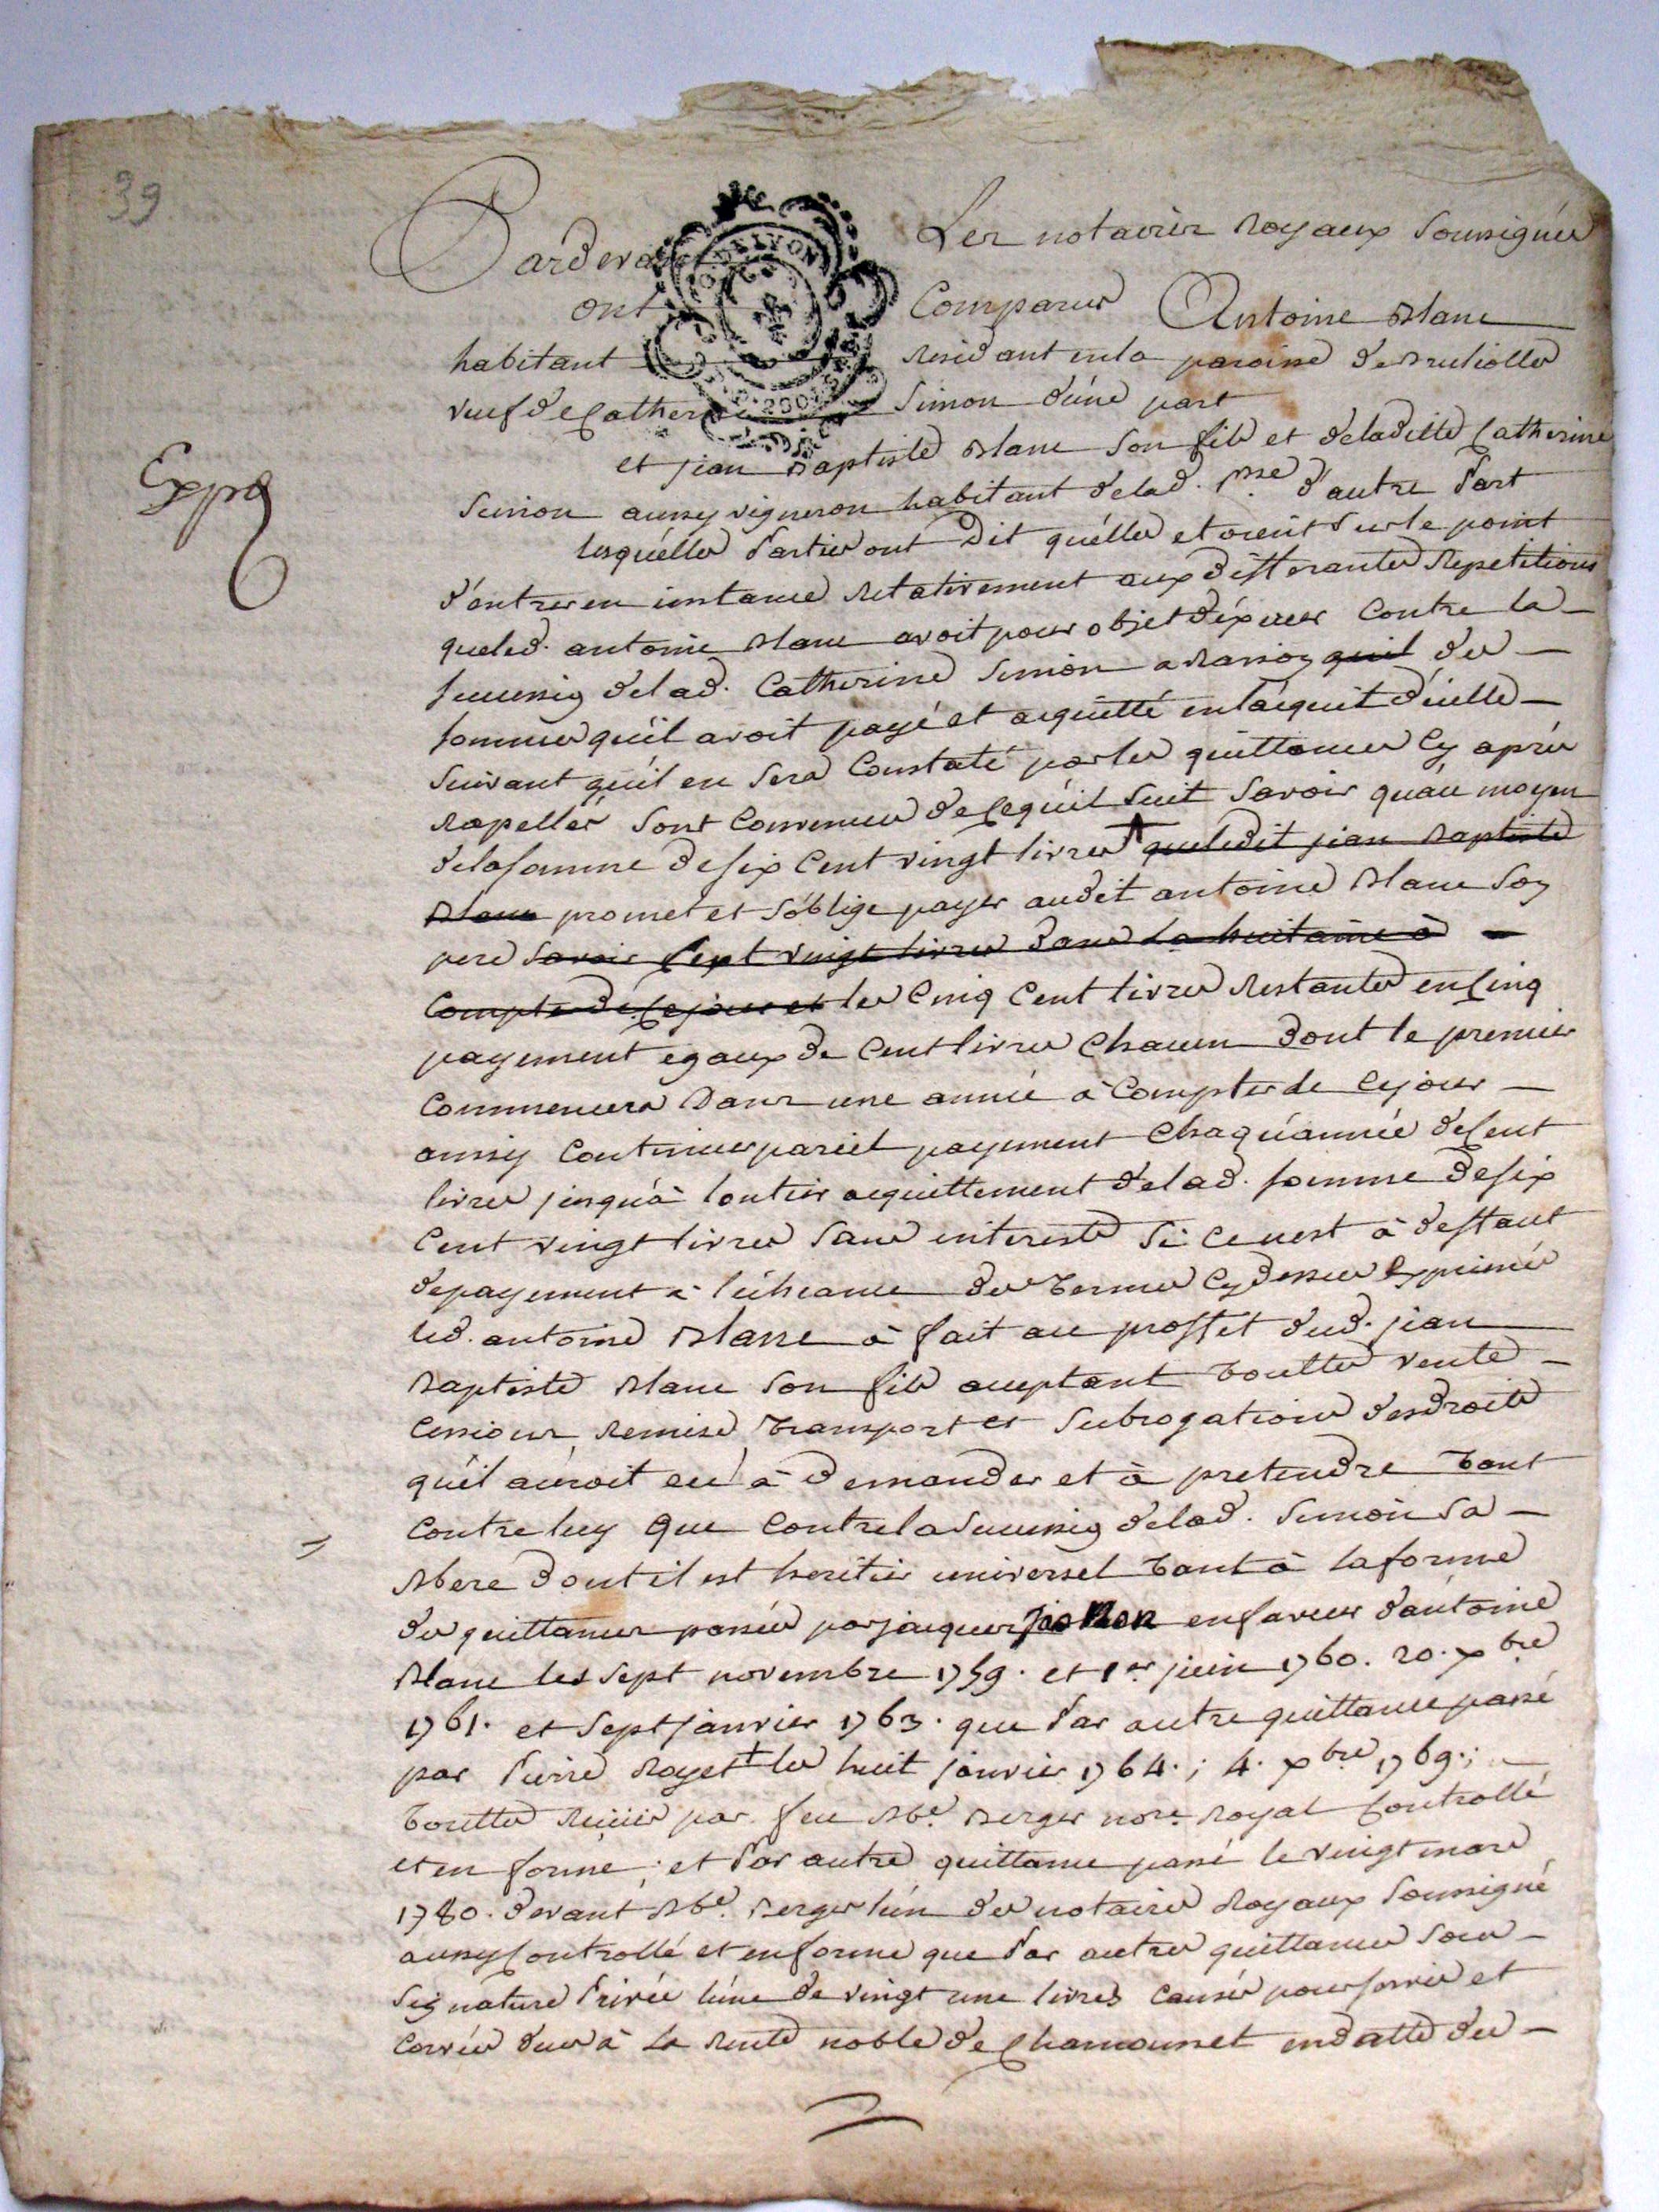 39
Pardevant Les notaires Royaux soussignés
ont Comparus Antoine Blanc
habitant residant en la paroisse de Brulliolles
veuf de Catherine Simon d'une part
et jean Baptiste Blanc son fils et de laditte Catherine
Simon aussy vigneron habitant de lad. psse d'autre Part
lesquelles Parties ont Dit qu'elles etoient sur le point
d'entrer en instance Relativement aux differantes Repetitions
que led. antoine Blanc avoit pour objet d'éxercer Contre la
succession de lad. Catherine Simon a Raison quil des
sommes qu'il avoit payé et acquitté en l'acquit d'icelle
suivant qu'il en sera Constaté par les quittances Cy aprés
Rapellés sont Convenues de Ce qu'il suit savoir qu'au moyen
de la somme de six Cent vingt livres que ledit jean Baptiste
Blanc promet et s'oblige payer audit antoine Blanc son
pere savoir sept vingt livres dans la huitaine à
Compte de Ce jour et les Cinq Cent livres Restantes en Cinq
payement egaux de Cent livres Chacun dont le premier
Commencera Dans une année à Compter de Ce jour
aussy Continuer pareil payement Chaqu'année de Cent
livres jusqu'à l'entier acquittement de lad. somme de six
Cent vingt livres sans interests si Ce n'est à deffaut
de payement à l'écheance des termes Cy dessus Exprimés
led. antoine Blanc à fait au proffet dud. jean
Baptiste Blanc son fils acceptant touttes vente
Cessions Remise transport et subrogations des droits
qu'il auroit eu à Demander et à pretendre tant
Contre luy que Contre la Succession de lad. Simon sa
Mere dont il est heritier universel tant à la forme
des quittances passées par jacques en faveur d'antoine
Blanc les sept novembre 1759. et 1er juin 1760. 20. xbre
1761. et sept janvier 1763. que Par autre quittance passé
par Pierre Royet + les huit janvier 1764.; 4. xbre 1769.;
touttes Reçües par feu Me. Berger nore. Royal Controllé
et en forme; et Par autre quittance passé le vingt mars
1780. devant Me. Berger l'un des notaires Royaux soussigné
aussy Controllé et en forme que Par autres quittances sous
signature Privée l'une de vingt une livres causée pour servis et
Corvées dues à la Rente noble de Chamousset en datte du
Expé